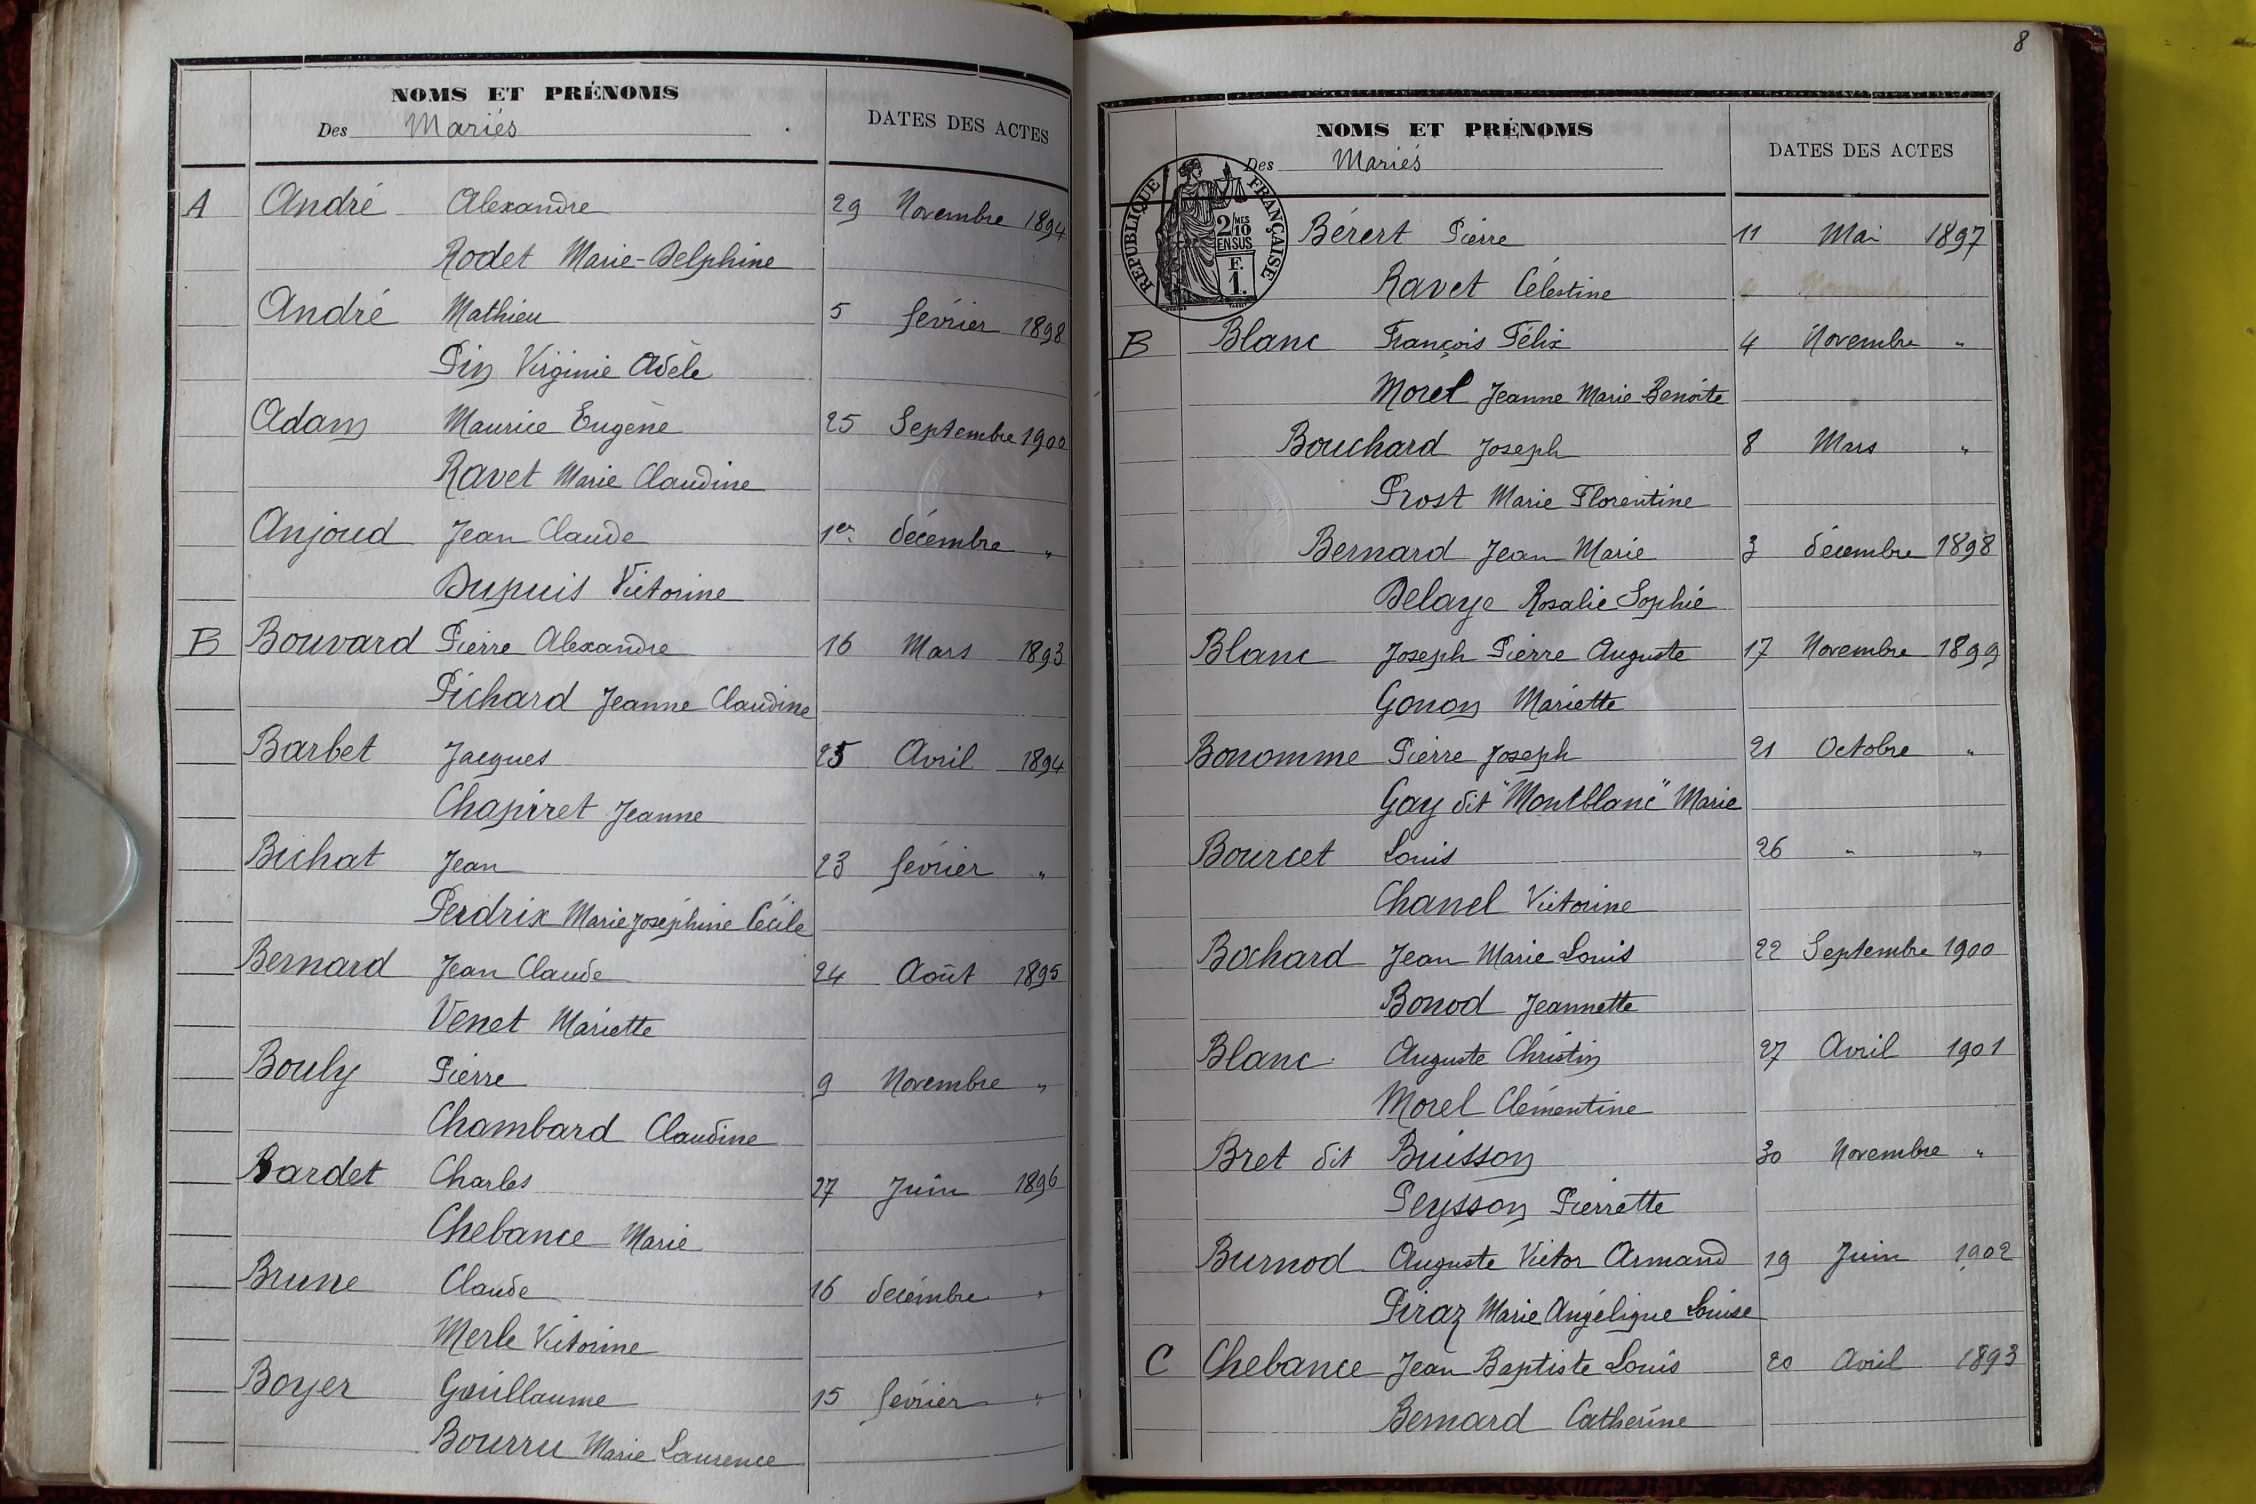 NOMS ET PRÉNOMS
Des Mariés
DATES DES ACTES
A André Alexandre 29 Novembre 1894
Rodet Marie-Delphine
André Mathieu 5 février 1898
Pin Virginie Adèle
Adam Maurice Eugène 25 Septembre 1900
Ravet Marie Claudine
Anjoud Jean Claude 1er décembre "
Dupuis Victorine
B Bouvard Pierre Alexandre 16 Mars 1893
Pichard Jeanne Claudine
Barbet Jacques 25 Avril 1894
Chapiret Jeanne
Bichat Jean 23 février "
Perdrix Marie Joséphine Cécile
Bernard Jean Claude 24 Août 1895
Venet Mariette
Bouly Pierre 9 Novembre "
Chambard Claudine
Bardet Charles 27 Juin 1896
Chebance Marie
Brune Claude 16 décembre "
Merle Victorine
Boyer Guillaume 15 février "
Bourru Marie Laurence
8
NOMS ET PRÉNOMS
Des Mariés
DATES DES ACTES
RÉPUBLIQUE FRANÇAISE
2/10 MES
EN SUS
F.
1.
Bérert Pierre 11 Mai 1897
Ravet Célestine
B Blanc François Félix 4 Novembre "
Morel Jeanne Marie Benoite
Bouchard Joseph 8 Mars "
Prost Marie Florentine
Bernard Jean Marie 3 décembre 1898
Delaye Rosalie Sophie
Blanc Joseph Pierre Auguste 17 Novembre 1899
Gonon Mariette
Bonomme Pierre Joseph 21 Octobre "
Gay dit "Montblanc" Marie
Bourcet Louis 26 " "
Chanel Victorine
Bochard Jean Marie Louis 22 Septembre 1900
Bonod Jeannette
Blanc Auguste Christin 27 Avril 1901
Morel Clémentine
Bret dit Buisson 30 Novembre "
Peysson Pierrette
Burnod Auguste Victor Armand 19 Juin 1902
Piraz Marie Angélique Louise
C Chebance Jean Baptiste Louis 20 Avril 1893
Bernard Catherine